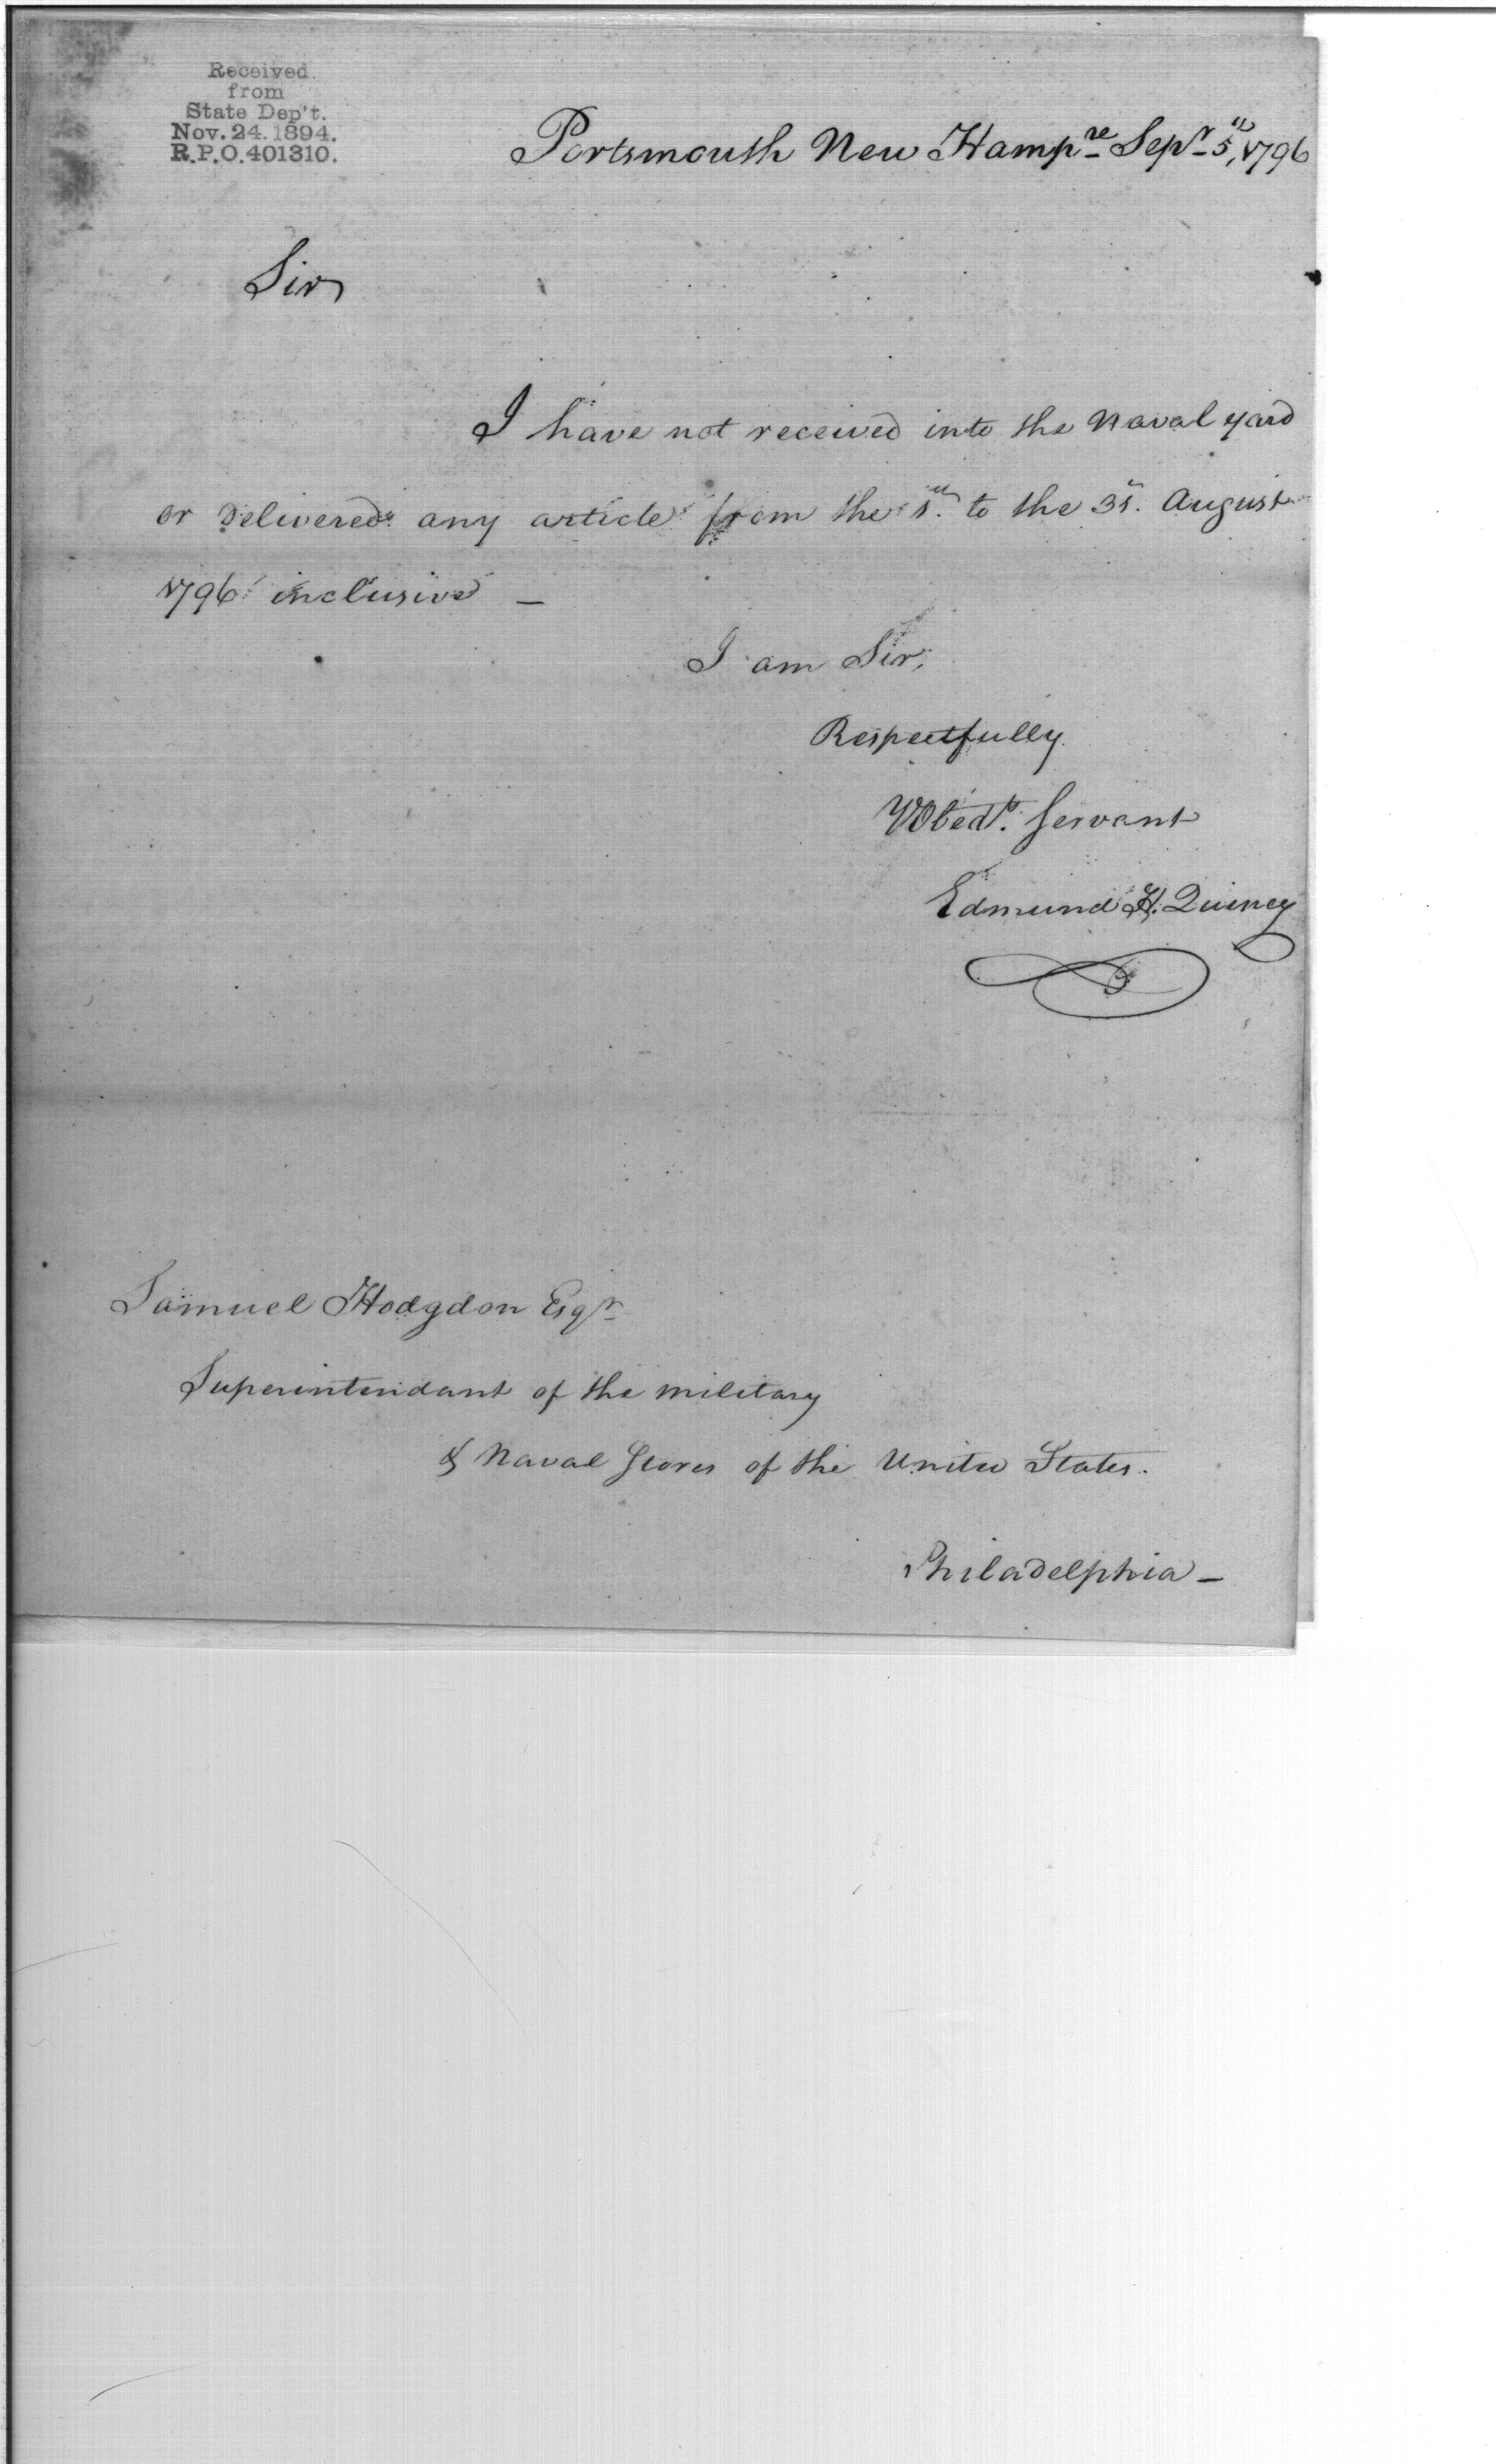 Received
from
State Dep't.
Nov. 24. 1894.
R.P.O. 401310.
Portsmouth New Hampre Sepr 5th, 1796
Sir
I have not received into the Naval yard
or Delivered any article from the 1st to the 31st August
1796 inclusive —
I am Sir,
Respectfully
Yr Obedt. Servant
Edmund H. Quincy
Samuel Hodgdon Esqr
Superintendant of the military
& Naval Stores of the United States.
Philadelphia —